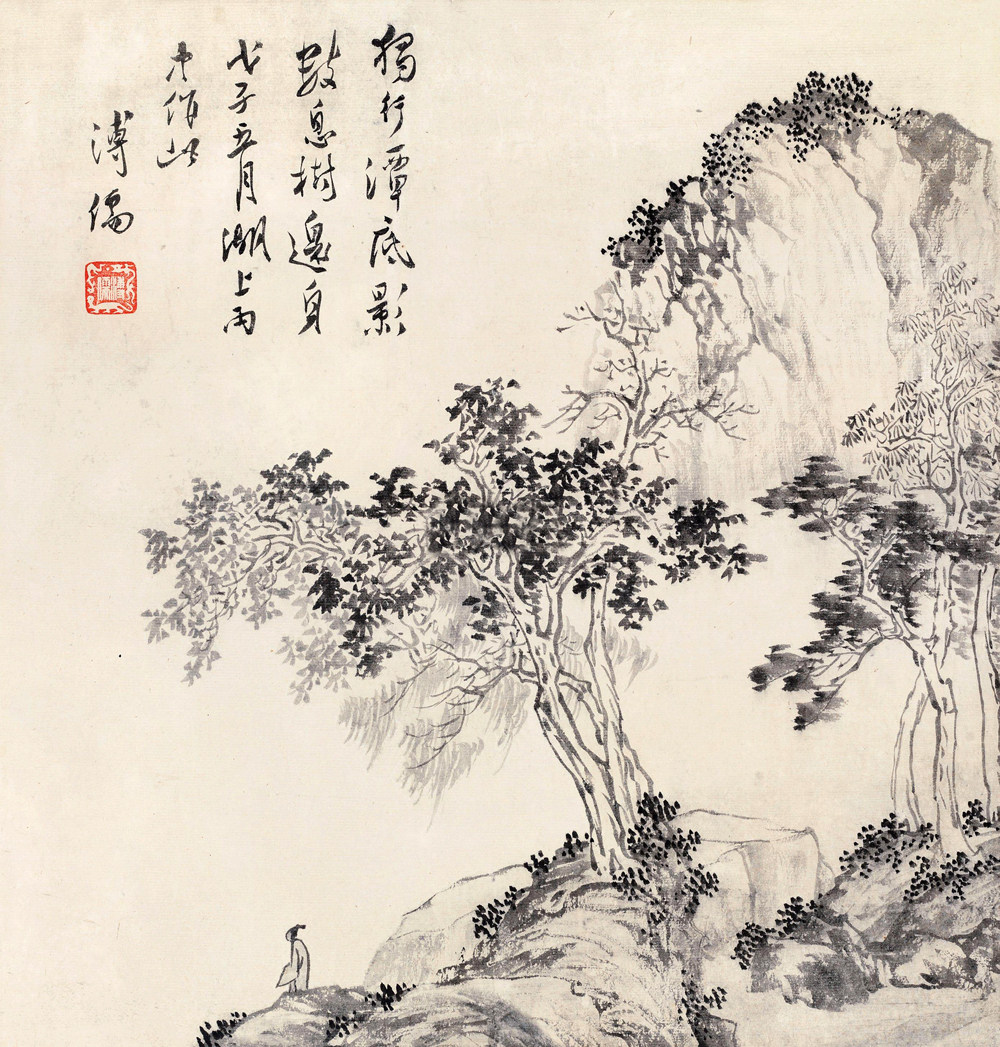 獨行潭底影
數息樹邊身
戊子五月湖上雨
中作此
溥儒